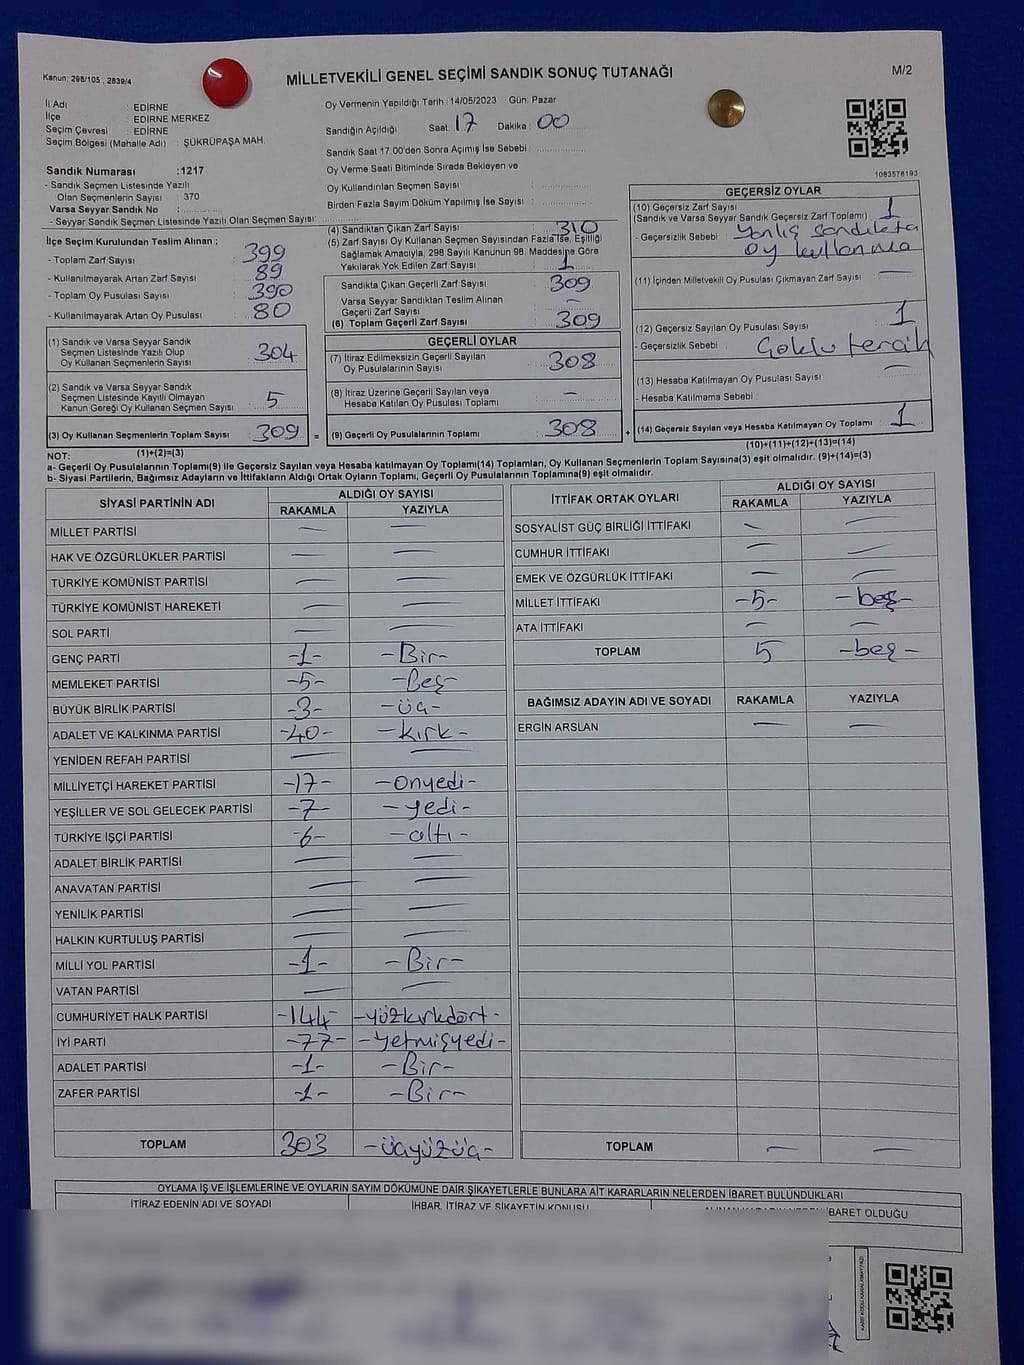 Kanun; 298/105 , 2839/4
MİLLETVEKİLİ GENEL SEÇİMİ SANDIK SONUÇ TUTANAĞI
M/2
İl Adı : EDİRNE
İlçe : EDİRNE MERKEZ
Seçim Çevresi : EDİRNE
Seçim Bölgesi (Mahalle Adı) : ŞÜKRÜPAŞA MAH
Sandık Numarası :1217
- Sandık Seçmen Listesinde Yazılı
Olan Seçmenlerin Sayısı : 370
Varsa Seyyar Sandık No :
- Seyyar Sandık Seçmen Listesinde Yazılı Olan Seçmen Sayısı:
Oy Vermenin Yapıldığı Tarih :14/05/2023 Gün: Pazar
Sandığın Açıldığı Saat: 17 Dakika : 00
Sandık Saat 17:00'den Sonra Açımış İse Sebebi :
Oy Verme Saati Bitiminde Sırada Bekleyen ve
Oy Kullandırılan Seçmen Sayısı :
Birden Fazla Sayım Döküm Yapılmış İse Sayısı :
1083576193
İlçe Seçim Kurulundan Teslim Alınan ;
- Toplam Zarf Sayısı : 399
- Kullanılmayarak Artan Zarf Sayısı : 89
- Toplam Oy Pusulası Sayısı : 390
- Kullanılmayarak Artan Oy Pusulası : 80
(1) Sandık ve Varsa Seyyar Sandık
Seçmen Listesinde Yazılı Olup
Oy Kullanan Seçmenlerin Sayısı : 304
(2) Sandık ve Varsa Seyyar Sandık
Seçmen Listesinde Kayıtlı Olmayan
Kanun Gereği Oy Kullanan Seçmen Sayısı : 5
(3) Oy Kullanan Seçmenlerin Toplam Sayısı : 309 =
(1)+(2)=(3)
(4) Sandıktan Çıkan Zarf Sayısı : 310
(5) Zarf Sayısı Oy Kullanan Seçmen Sayısından Fazla İse, Eşitliği
Sağlamak Amacıyla, 298 Sayılı Kanunun 98. Maddesine Göre
Yakılarak Yok Edilen Zarf Sayısı : 1
Sandıkta Çıkan Geçerli Zarf Sayısı : 309
Varsa Seyyar Sandıktan Teslim Alınan
Geçerli Zarf Sayısı : –
(6) Toplam Geçerli Zarf Sayısı : 309
GEÇERLİ OYLAR
(7) İtiraz Edilmeksizin Geçerli Sayılan
Oy Pusulalarının Sayısı : 308
(8) İtiraz Üzerine Geçerli Sayılan veya
Hesaba Katılan Oy Pusulası Toplamı : –
(9) Geçerli Oy Pusulalarının Toplamı : 308 +
GEÇERSİZ OYLAR
(10) Geçersiz Zarf Sayısı
(Sandık ve Varsa Seyyar Sandık Geçersiz Zarf Toplamı) : 1
- Geçersizlik Sebebi : Yanlış sandıkta
oy kullanma
(11) İçinden Milletvekili Oy Pusulası Çıkmayan Zarf Sayısı : –
(12) Geçersiz Sayılan Oy Pusulası Sayısı : 1
- Geçersizlik Sebebi : Çoklu tercih
(13) Hesaba Katılmayan Oy Pusulası Sayısı : –
- Hesaba Katılmama Sebebi :
(14) Geçersiz Sayılan veya Hesaba Katılmayan Oy Toplamı : 1
(10)+(11)+(12)+(13)=(14)
NOT:
a- Geçerli Oy Pusulalarının Toplamı(9) ile Geçersiz Sayılan veya Hesaba katılmayan Oy Toplamı(14) Toplamları, Oy Kullanan Seçmenlerin Toplam Sayısına(3) eşit olmalıdır. (9)+(14)=(3)
b- Siyasi Partilerin, Bağımsız Adayların ve İttifakların Aldığı Ortak Oyların Toplamı, Geçerli Oy Pusulalarının Toplamına(9) eşit olmalıdır.
SİYASİ PARTİNİN ADI ALDIĞI OY SAYISI
RAKAMLA YAZIYLA
MİLLET PARTİSİ – –
HAK VE ÖZGÜRLÜKLER PARTİSİ – –
TÜRKİYE KOMÜNİST PARTİSİ – –
TÜRKİYE KOMÜNİST HAREKETİ – –
SOL PARTİ – –
GENÇ PARTİ -1- -Bir-
MEMLEKET PARTİSİ -5- -Beş-
BÜYÜK BİRLİK PARTİSİ -3- -üç-
ADALET VE KALKINMA PARTİSİ -40- -kırk-
YENİDEN REFAH PARTİSİ – –
MİLLİYETÇİ HAREKET PARTİSİ -17- -Onyedi-
YEŞİLLER VE SOL GELECEK PARTİSİ -7- -yedi-
TÜRKİYE İŞÇİ PARTİSİ -6- -altı-
ADALET BİRLİK PARTİSİ – –
ANAVATAN PARTİSİ – –
YENİLİK PARTİSİ – –
HALKIN KURTULUŞ PARTİSİ – –
MİLLİ YOL PARTİSİ -1- -Bir-
VATAN PARTİSİ – –
CUMHURİYET HALK PARTİSİ -144- -yüzkırkdört-
İYİ PARTİ -77- -yetmişyedi-
ADALET PARTİSİ -1- -Bir-
ZAFER PARTİSİ -1- -Bir-
TOPLAM 303 -üçyüzüç-
İTTİFAK ORTAK OYLARI ALDIĞI OY SAYISI
RAKAMLA YAZIYLA
SOSYALİST GÜÇ BİRLİĞİ İTTİFAKI – –
CUMHUR İTTİFAKI – –
EMEK VE ÖZGÜRLÜK İTTİFAKI – –
MİLLET İTTİFAKI -5- -beş-
ATA İTTİFAKI – –
TOPLAM 5 -beş-
BAĞIMSIZ ADAYIN ADI VE SOYADI RAKAMLA YAZIYLA
ERGİN ARSLAN – –
TOPLAM – –
OYLAMA İŞ VE İŞLEMLERİNE VE OYLARIN SAYIM DÖKÜMÜNE DAİR ŞİKAYETLERLE BUNLARA AİT KARARLARIN NELERDEN İBARET BULUNDUKLARI
İTİRAZ EDENİN ADI VE SOYADI
İHBAR, İTİRAZ VE ŞİKAYETİN KONUSU
İBARET OLDUĞU